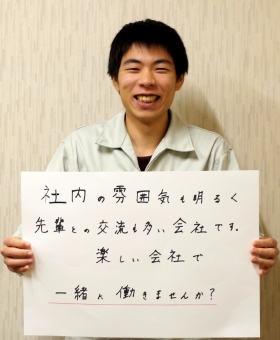 社内の雰囲気も明るく
先輩との交流も多い会社です。
楽しい会社で
一緒に働きませんか？